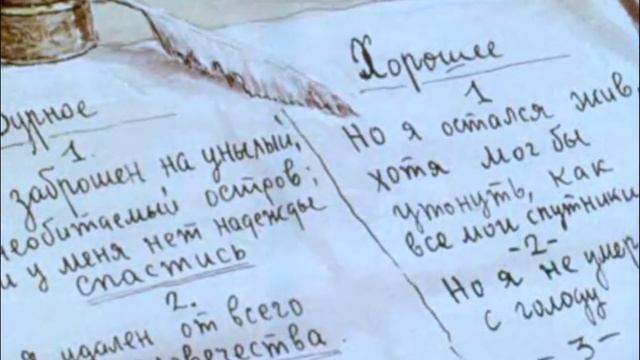 Дурное
1.
заброшен на унылый,
необитаемый остров;
и у меня нет надежды
спастись
2.
я удален от всего
человечества.
Хорошее
1
Но я остался жив,
хотя мог бы
утонуть, как
все мои спутники
-2-
Но я не умер
с голоду
-3-